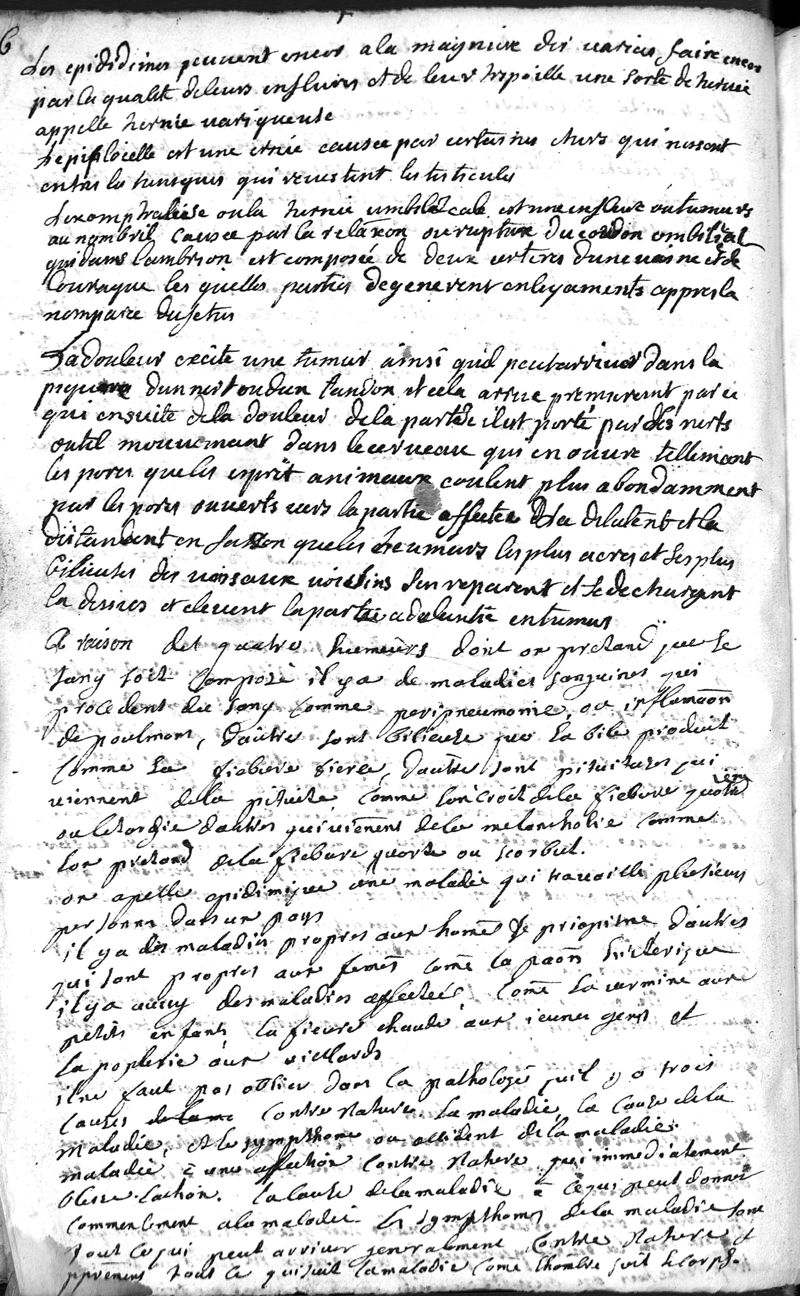 6
Les epididimes peuvent encor a la maigniere des varices faire encor
par la qualité de leurs enflures et de leur une sorte de hernie
appelle hernie variqueuse
Lepiplocelle est une ernie causee par certaines chers qui nessent
entre les tuniques qui revestent les testicules
Lexomphalese ou la hernie umbilicale est une enfleure ou tumeurs
au nombril causee par la relaxon ou rupture du cordon ombilical
qui dans lambrion est composée de deux arteres dune vesne et de
louraque les quelles parties degenerent en ligaments appres la
du fetus
La douleur excite une tumur ainsi quil peut arriver dans la
piquure dun nerf ou dun tandon et cela arrive premierement par ce
qui ensuite de la douleur de la partie il est porté par des nerfs
mouvemant dans le cerveau qui en ouvre tellemant
les pores que les esprit animaux coulent plus abondamment
par les pores ouverts vers la partie affectée la dilatent et la
distandent en fasson que les heumeurs les plus acres et les plus
bilieuses des vesseaux voisins sen reparent et se dechargent
la dessus et elevent la partie en tumeur
A raison des quatre humeurs dont on pretand que le
sang soit composé il y a de maladies sanguines qui
procedent du sang comme peripneumonie, ou inflamaon
de poulmons, dautre sont bilieuse que la bile produit
comme la fiebvre tierce, dautre sont pituiteuses qui
viennent de la pituite, comme lon croit de la fiebvre quotidiene
ou letargie dautres qui vienent de la melancholie comme
lon pretand de la fiebvre quarte ou scorbut.
on apelle epidimique une maladie qui travaille plusieurs
personnes dans un pays
il y a des maladies propres aux homes le priapisme, dautres
qui sont propres aux femes come la paon histerique
il y a aussy des maladies affectées come la vermine aux
petits enfants la fievre chaude aux ieunes gens et
lapoplexie aux viellards
il ne faut pas oblier dans la pathologie quil y a trois
causes contre nature. la maladie, la cause de la
maladie, et le sympthome ou accident de la maladie.
maladie è une affection contre nature qui immediatement
blesse laction. la cause de la maladie è ce qui peut donner
commencement a la maladie. le symptome de la maladie sont
tout ce qui peut arriver generalement contre nature et
tout ce qui suit la maladie come lhombre suit le corps.